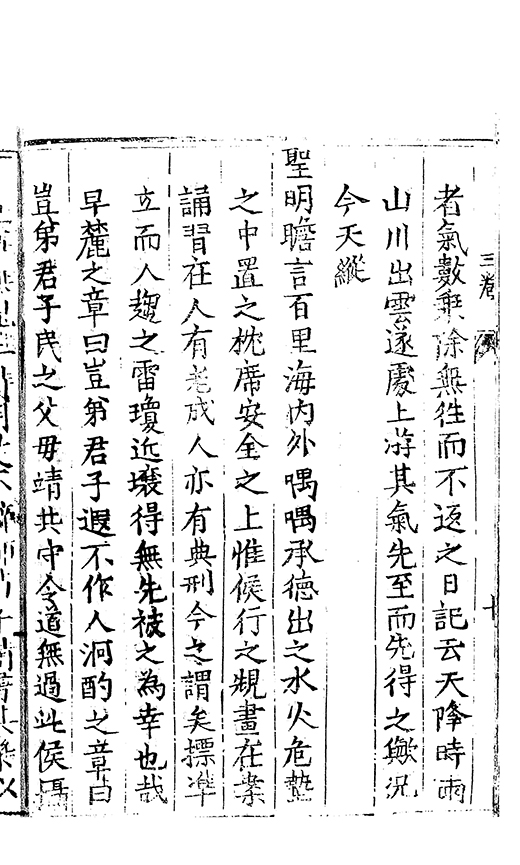 三卷
者氣數乘除無徃而不返之日記云天降時雨
山川出雲逐處上游其氣先至而先得之歟况
今天縱
聖明瞻言百里海内外喁喁承德出之水火危墊
之中置之枕席安全之上惟侯行之規畫在案
誦習在人有老成人亦有典刑今之謂矣摽準
立而人趨之雷瓊近壤得無先被之為幸也哉
早麓之章曰豈弟君子遐不作人泂酌之章曰
豈弟君子民之父毋靖共中令道無過此侯